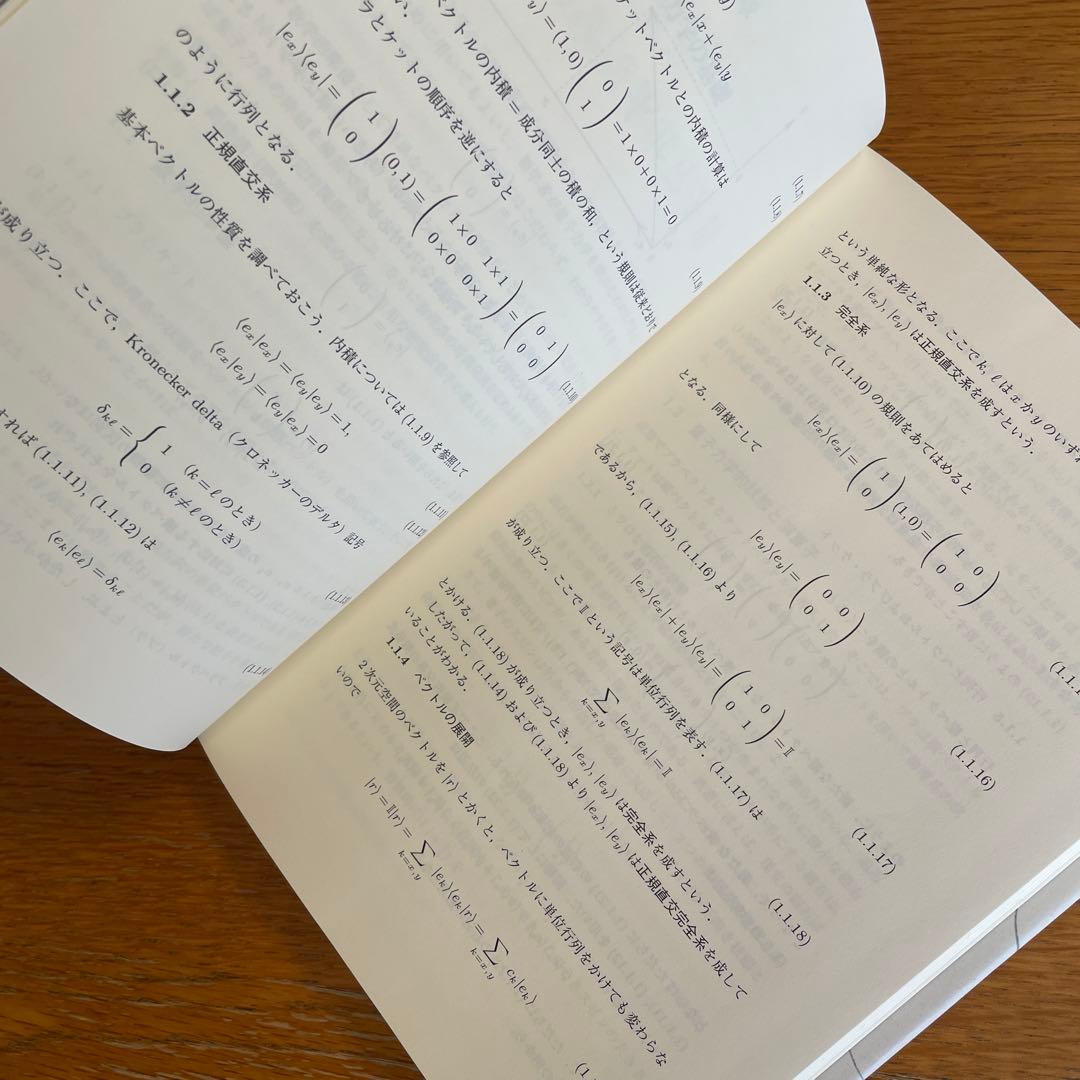 ⟨e_x|x + ⟨e_y|y
ケットベクトルとの内積の計算は
(1.1.7)
(1.1.8)
⟩ = (1, 0) ( 0 1 ) = 1 × 0 + 0 × 1 = 0
(1.1.9)
ベクトルの内積 = 成分同士の積の和, という規則は従来どおりで
い.
ラとケットの順序を逆にすると
|e_x⟩⟨e_y| = ( 1 0 ) (0, 1) = ( 1×0 1×1 0×0 0×1 ) = ( 0 1 0 0 )
(1.1.10)
のように行列となる.
1.1.2 正規直交系
基本ベクトルの性質を調べておこう. 内積については (1.1.9) を参照して
⟨e_x|e_x⟩ = ⟨e_y|e_y⟩ = 1,
(1.1.11)
⟨e_x|e_y⟩ = ⟨e_y|e_x⟩ = 0
(1.1.12)
が成り立つ. ここで, Kronecker delta (クロネッカーのデルタ) 記号
δ_kℓ = { 1 (k = ℓ のとき)
0 (k ≠ ℓ のとき)
(1.1.13)
すれば (1.1.11), (1.1.12) は
⟨e_k|e_ℓ⟩ = δ_kℓ
(1.1.14)
という単純な形となる. ここで k, ℓ は x か y のいずれ
立つとき, |e_x⟩, |e_y⟩ は正規直交系を成すという.
1.1.3 完全系
|e_x⟩ に対して (1.1.10) の規則をあてはめると
|e_x⟩⟨e_x| = ( 1 0 ) (1, 0) = ( 1 0 0 0 )
となる. 同様にして
|e_y⟩⟨e_y| = ( 0 0 0 1 )
(1.1.16)
であるから, (1.1.15), (1.1.16) より
|e_x⟩⟨e_x| + |e_y⟩⟨e_y| = ( 1 0 0 1 ) = 𝕀
(1.1.17)
が成り立つ. ここで 𝕀 という記号は単位行列を表す. (1.1.17) は
∑_{k=x,y} |e_k⟩⟨e_k| = 𝕀
(1.1.18)
とかける. (1.1.18) が成り立つとき, |e_x⟩, |e_y⟩ は完全系を成すという.
したがって, (1.1.14) および (1.1.18) より |e_x⟩, |e_y⟩ は正規直交完全系を成して
いることがわかる.
1.1.4 ベクトルの展開
2 次元空間のベクトルを |r⟩ とかくと, ベクトルに単位行列をかけても変わらな
いので
|r⟩ = 𝕀|r⟩ = ∑_{k=x,y} |e_k⟩⟨e_k|r⟩ = ∑_{k=x,y} c_k|e_k⟩